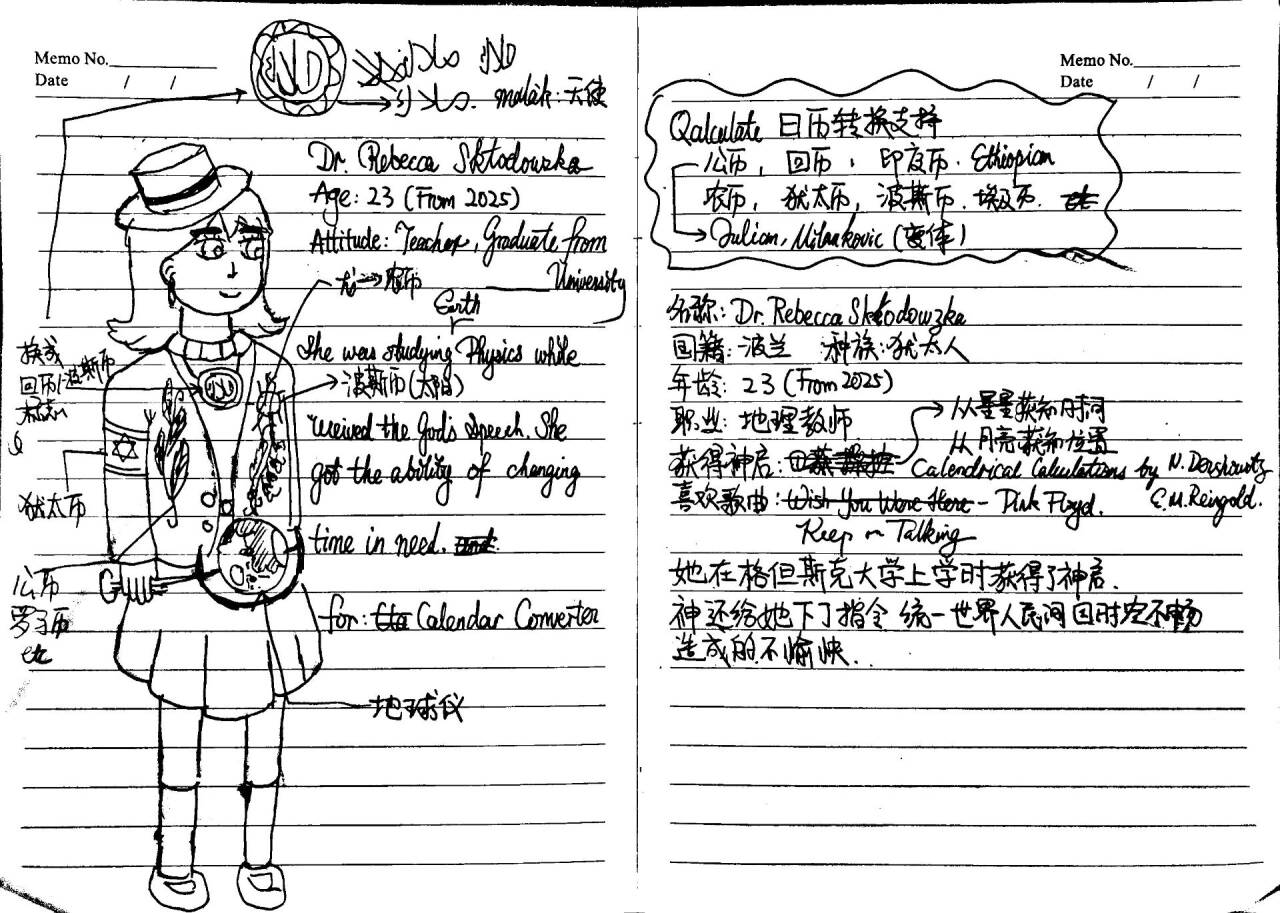 Memo No.
Date / /
malak: 天使
Dr. Rebecca Skłodowzka
Age: 23 (From 2025)
Attitude: Teacher, Graduate from
University
农历
Earth
She was studying Physics while
波斯历(太阳)
weived the God's Speech. She
got the ability of changing
time in need.
for: Calendar Converter
换成
回历/波斯历
标志
犹太历
公历
罗马历
etc
地球仪
Memo No.
Date / /
Qalculate 日历转换支持
公历, 回历, 印度历. Ethiopian
农历, 犹太历, 波斯历. 埃及历.
Julian, Milankovic (变体)
名称: Dr. Rebecca Skłodowzka
国籍: 波兰 种族: 犹太人
年龄: 23 (From 2025)
职业: 地理教师
从星星获知时间
从月亮获知位置
获得神启:
Calendrical Calculations by N. Dershowitz
E.M. Reingold.
喜欢歌曲: Wish You Were Here - Pink Floyd.
Keep on Talking
她在格但斯克大学上学时获得了神启.
神还给她下了指令 统一世界人民间因时空不畅
造成的不愉快.